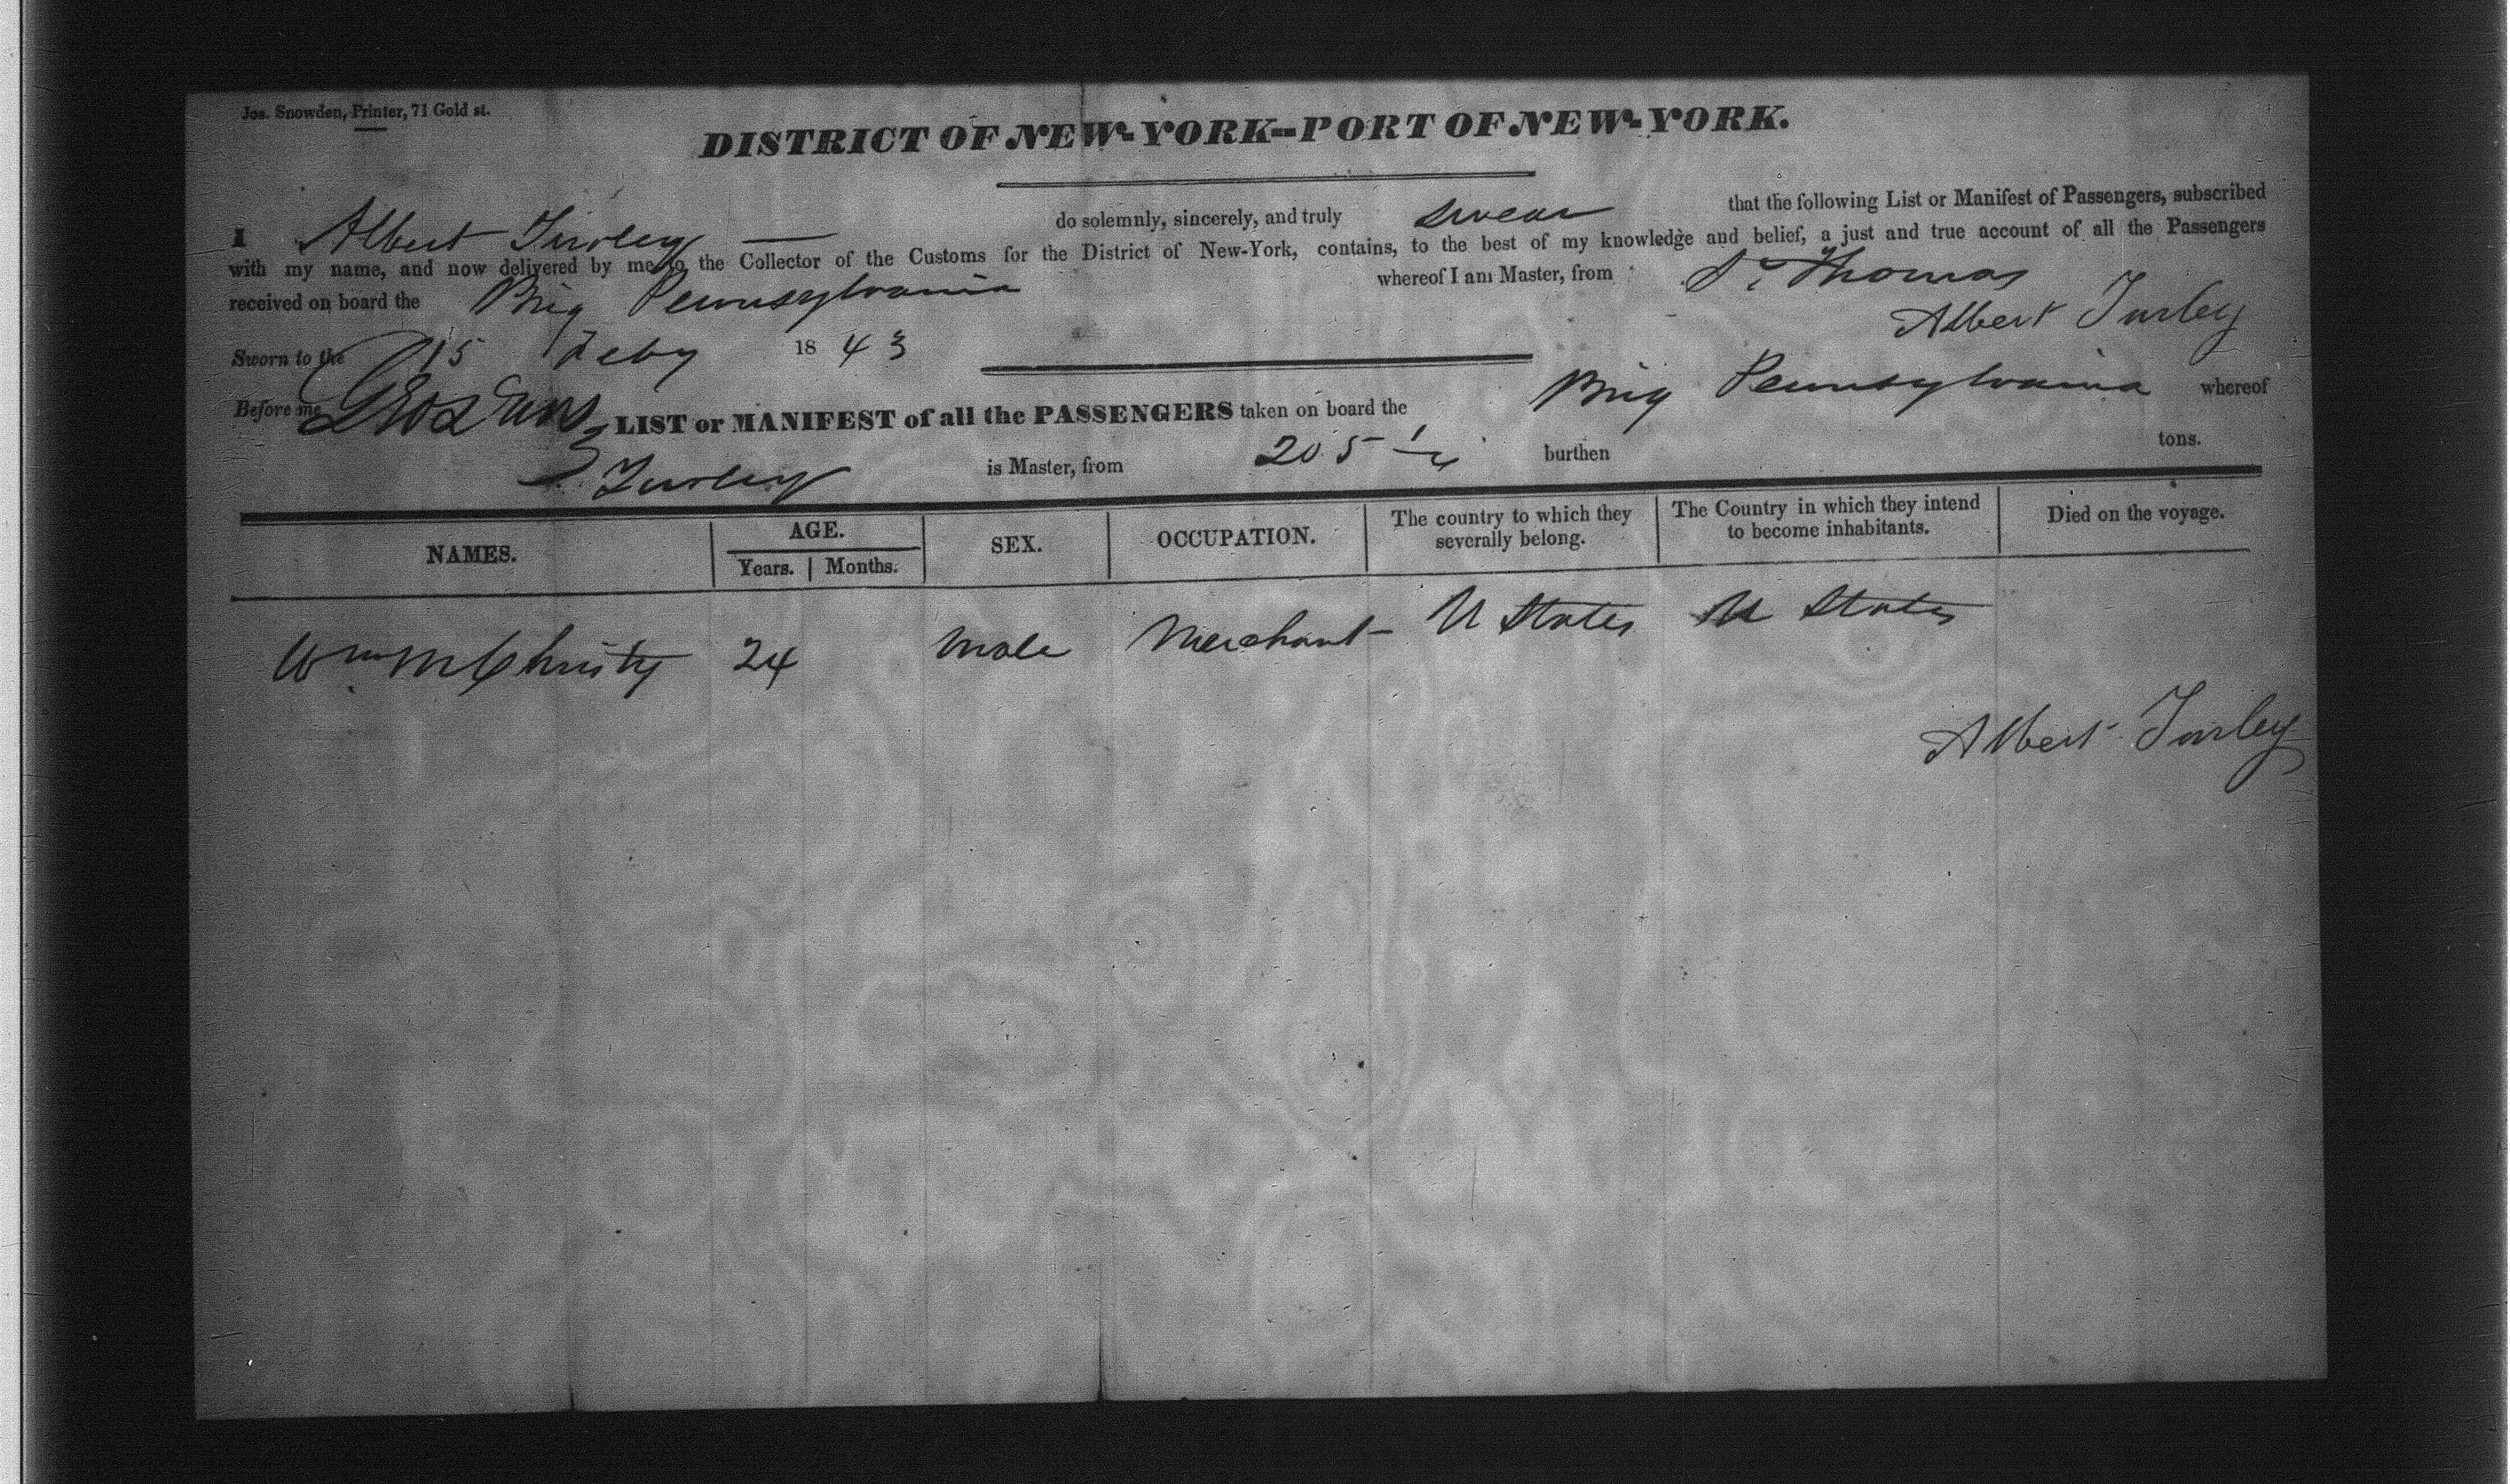 Jos. Snowden, Printer, 71 Gold st.
DISTRICT OF NEW-YORK--PORT OF NEW-YORK.
I Albert Turley do solemnly, sincerely, and truly swear that the following List or Manifest of Passengers, subscribed
with my name, and now delivered by me to the Collector of the Customs for the District of New-York, contains, to the best of my knowledge and belief, a just and true account of all the Passengers
received on board the Brig Pennsylvania whereof I am Master, from St Thomas
Albert Turley
Sworn to the 15 Feby 1843
Before me
LIST or MANIFEST of all the PASSENGERS taken on board the Brig Pennsylvania whereof
Turley is Master, from 205 ¼ burthen tons.
NAMES. AGE. SEX. OCCUPATION. The country to which they severally belong. The Country in which they intend to become inhabitants. Died on the voyage.
Years. Months.
Wm McChristy 24 Male Merchant U States U States
Albert Turley